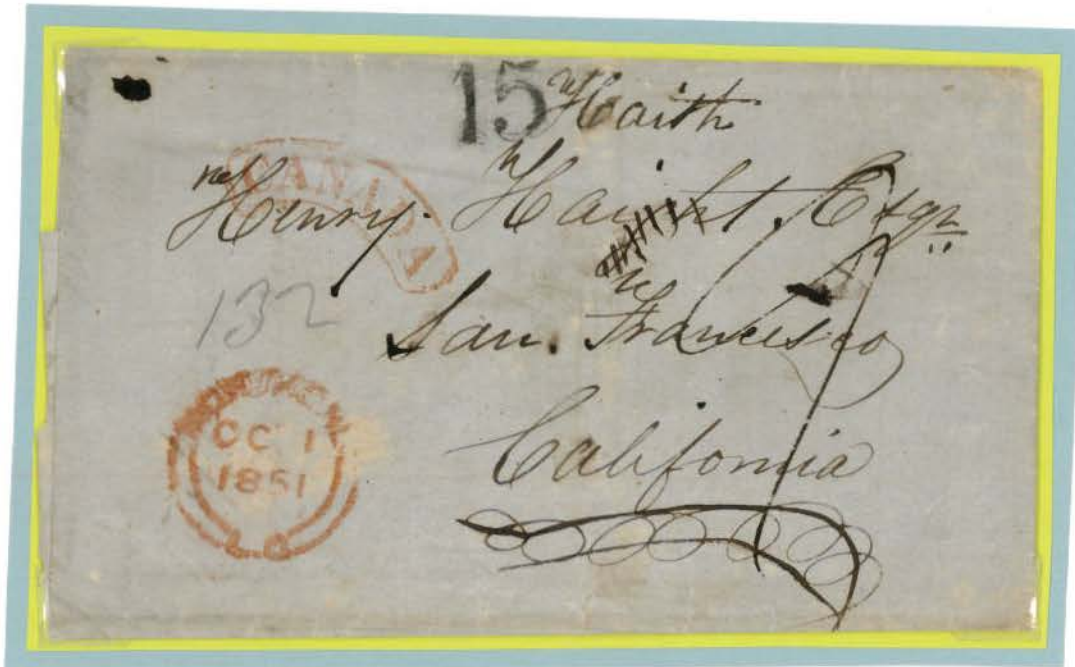 15
Haith
CANADA
Henry. Haight. Esqr
132
San. Francisco
California
OC 1
1851
L.C